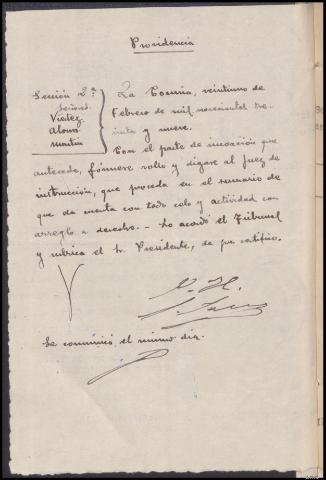 Providencia
Sección 2ª
Señores
Viéitez
Alonso
Martín
La Coruña, veintiuno de
Febrero de mil novecientos tre-
inta y nueve.
Con el parte de incoación que
antecede, fórmese rollo y dígase al Juez de
instrucción, que proceda en el sumario de
que da cuenta con todo celo y actividad con
arreglo a derecho. — Lo acordó el Tribunal
y rubrica el Sr. Presidente, de que certifico.
Se comunicó el mismo día.